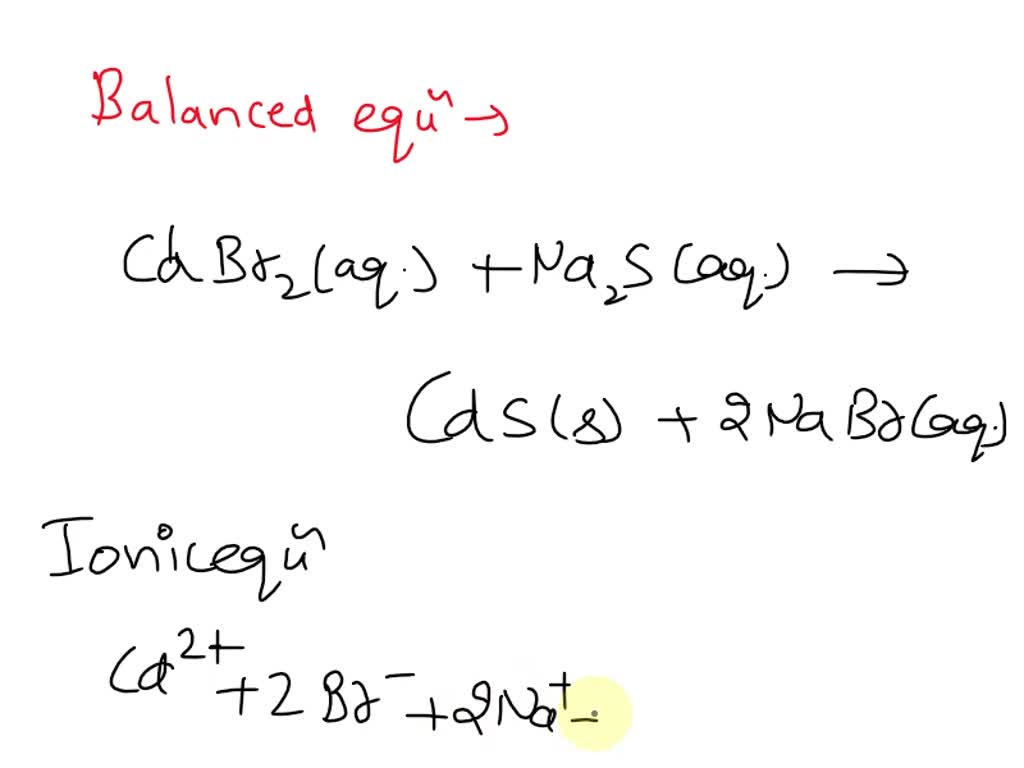 Balanced equⁿ →
CdBr₂(aq.) + Na₂S(aq.) →
CdS(s) + 2NaBr(aq.)
Ionic equⁿ
Cd²⁺ + 2Br⁻ + 2Na⁺ -